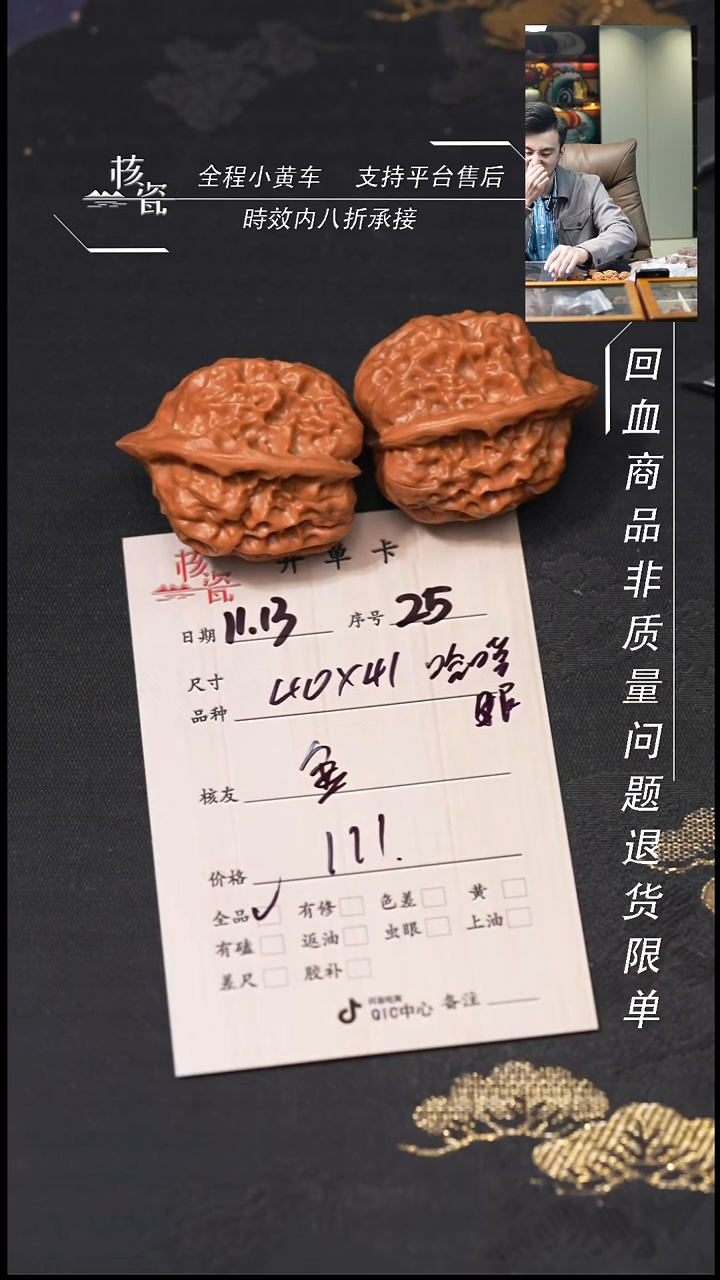 核瓷
全程小黄车 支持平台售后
時效内八折承接
回血商品非质量问题退货限单
核瓷
开单卡
日期 11.13 序号 25
尺寸 40X41
品种
眼
核友
价格 111.
全品 有修 色差 黄
有磕 返油 虫眼 上油
差尺 胶补
QIC中心 备注